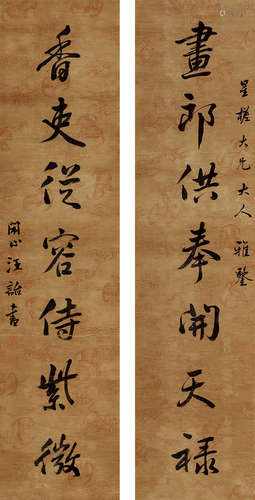 畫郎供奉開天祿
星槎大兄大人雅鑒
香吏從容侍紫微
閑山汪詒書